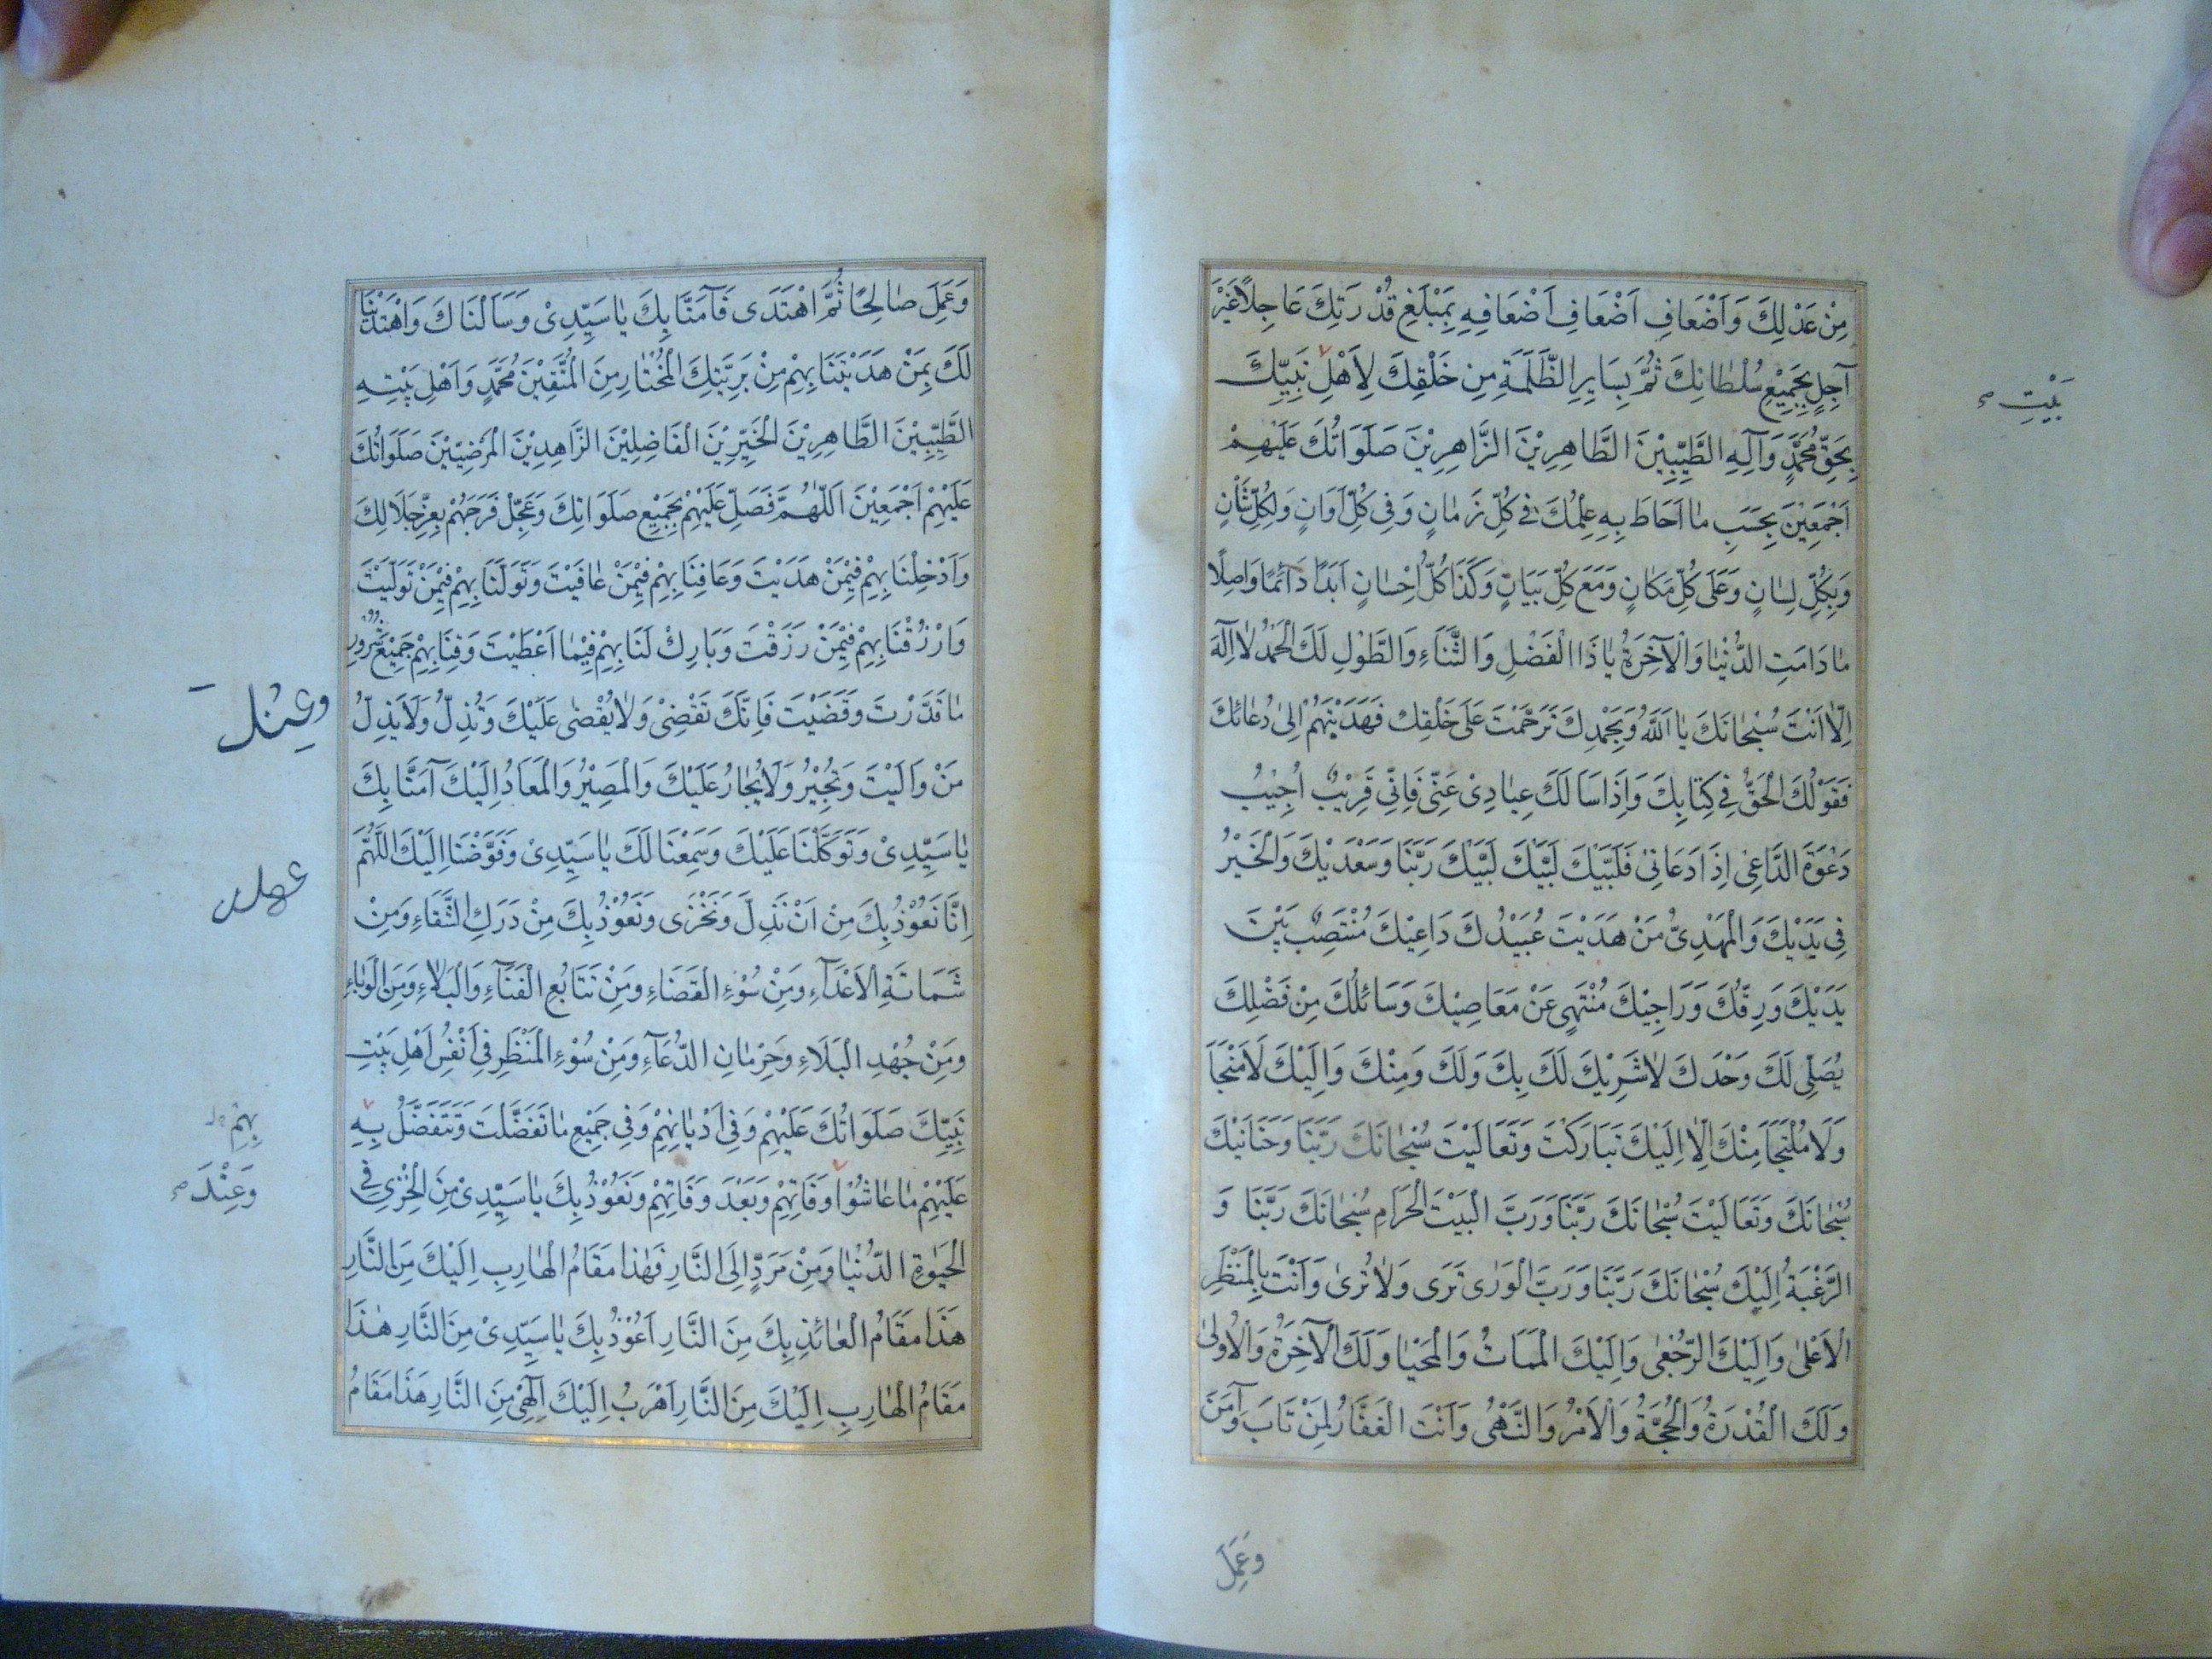 مِنْ عَدْلِكَ وَاَضْعَافِ اَضْعَافِ اَضْعَافِهِ بِمَبْلَغِ قُدْرَتِكَ عَاجِلًا غَيْرَ
آجِلٍ بِجَمِيْعِ سُلْطَانِكَ ثُمَّ بِسَايِرِ الظَّلَمَةِ مِن خَلْقِكَ لِاَهْلِ نَبِيِّكَ
بَيْتِ
بِحَقِّ مُحَمَّدٍ وَآلِهِ الطَّيِّبِيْنَ الطَّاهِرِيْنَ الزَّاهِرِيْنَ صَلَوَاتُكَ عَلَيْهِمْ
اَجْمَعِيْنَ بِحَسَبِ مٰا اَحَاطَ بِهِ عِلْمُكَ فِي كُلِّ زَمٰانٍ وَفِي كُلِّ اَوَانٍ وَلِكُلِّ شَأْنٍ
وَبِكُلِّ لِسٰانٍ وَعَلَى كُلِّ مَكٰانٍ وَمَعَ كُلِّ بَيَانٍ وَكَذَا كُلُّ اِحْسٰانٍ اَبَدًا دَائِمًا وَاصِلًا
مٰا دَامَتِ الدُّنْيٰا وَالْآخِرَةُ يٰا ذَا الْفَضْلِ وَالثَّنَاءِ وَالطَّوْلِ لَكَ الْحَمْدُ لٰا اِلٰهَ
اِلّٰا اَنْتَ سُبْحٰانَكَ يٰا اَللّٰهُ وَبِحَمْدِكَ تَرَحَّمْتَ عَلَى خَلْقِكَ فَهَدَيْتَهُمْ اِلىٰ دُعٰائِكَ
فَقَوْلُكَ الْحَقُّ فِي كِتٰابِكَ وَاِذَا سَاَلَكَ عِبٰادِىْ عَنِّى فَاِنِّي قَرِيْبٌ اُجِيْبُ
دَعْوَةَ الدَّاعِىْ اِذَا دَعَانِىْ فَلَبَّيْكَ لَبَّيْكَ لَبَّيْكَ رَبَّنَا وَسَعْدَيْكَ وَالْخَيْرُ
فِي يَدَيْكَ وَالْمَهْدِىُّ مَنْ هَدَيْتَ عُبَيْدُكَ دَاعِيْكَ مُنْتَصِبٌ بَيْنَ
يَدَيْكَ وَرِقُّكَ وَرَاجِيْكَ مُنْتَهِى عَنْ مَعَاصِيْكَ وَسَائِلُكَ مِنْ فَضْلِكَ
يُصَلِّي لَكَ وَحْدَكَ لٰا شَرِيْكَ لَكَ بِكَ وَلَكَ وَمِنْكَ وَاِلَيْكَ لَا مَنْجَأَ
وَلَا مُلْتَجَأَ مِنْكَ اِلّٰا اِلَيْكَ تَبَارَكْتَ وَتَعَالَيْتَ سُبْحٰانَكَ رَبَّنَا وَحَنَانَيْكَ
سُبْحٰانَكَ وَتَعَالَيْتَ سُبْحٰانَكَ رَبَّنَا وَرَبَّ الْبَيْتَ الْحَرَامِ سُبْحٰانَكَ رَبَّنَا وَ
الرَّغْبَةُ اِلَيْكَ سُبْحٰانَكَ رَبَّنَا وَرَبَّ الْوَرٰى تَرَى وَلٰا تُرىٰ وَاَنْتَ بِالْمَنْظَرِ
الْاَعْلىٰ وَاِلَيْكَ الرُّجْعٰى وَاِلَيْكَ الْمَمَاتُ وَالْمَحْيٰا وَلَكَ الْآخِرَةُ وَالْاُولىٰ
وَلَكَ الْقُدْرَةُ وَالْحُجَّةُ وَالْاَمْرُ وَالنَّهْىُ وَاَنْتَ الْغَفَّارُ لِمَنْ تَابَ وَآمَنَ
وَعَمِلَ
وَعَمِلَ صٰالِحًا ثُمَّ اهْتَدَى فَآمَنَّا بِكَ يٰا سَيِّدِىْ وَسَاَلْنَاكَ وَاهْتَدَيْنَا
لَكَ بِمَنْ هَدَيْتَنَا بِهِمْ مِنْ بَرِيَّتِكَ الْمُخْتٰارِ مِنَ الْمُتَّقِيْنَ مُحَمَّدٍ وَاَهْلِ بَيْتِهِ
الطَّيِّبِيْنَ الطَّاهِرِيْنَ الْخَيِّرِيْنَ الْفَاضِلِيْنَ الزَّاهِدِيْنَ الْمَرْضِيِّيْنَ صَلَوَاتُكَ
عَلَيْهِمْ اَجْمَعِيْنَ اَللّٰهُمَّ فَصَلِّ عَلَيْهِمْ بِجَمِيْعِ صَلَوَاتِكَ وَعَجِّلْ فَرَجَهُمْ بِعِزِّ جَلَالِكَ
وَاَدْخِلْنَا بِهِمْ فِيْمَنْ هَدَيْتَ وَعَافِنَا بِهِمْ فِيْمَنْ عٰافَيْتَ وَتَوَلَّنَا بِهِمْ فِيْمَنْ تَوَلَّيْتَ
وَارْزُقْنَا بِهِمْ فِيْمَنْ رَزَقْتَ وَبَارِكْ لَنَا بِهِمْ فِيْمٰا اَعْطَيْتَ وَقِنَا بِهِمْ جَمِيْعَ شُرُوْرِ
مٰا قَدَّرْتَ وَقَضَيْتَ فَاِنَّكَ تَقْضِىْ وَلٰا يُقْضٰى عَلَيْكَ وَتُذِلُّ وَلَا يَذِلُّ
مَنْ وَالَيْتَ وَتُجِيْرُ وَلَا يُجٰارُ عَلَيْكَ وَالْمَصِيْرُ وَالْمَعَادُ اِلَيْكَ آمَنَّا بِكَ
يٰا سَيِّدِىْ وَتَوَكَّلْنَا عَلَيْكَ وَسَمِعْنَا لَكَ يٰا سَيِّدِىْ وَفَوَّضْنَا اِلَيْكَ اللّٰهُمَّ
اِنَّا نَعُوْذُ بِكَ مِنْ اَنْ نَذِلَّ وَنَخْزَى وَنَعُوْذُ بِكَ مِنْ دَرَكِ الشَّقَاءِ وَمِنْ
شَمَاتَةِ الْاَعْدَآءِ وَمِنْ سُوْءِ الْقَضَاءِ وَمِنْ تَتَابُعِ الْفَنَآءِ وَالْبَلَاءِ وَمِنَ الْوَبٰاءِ
وَمِنْ جُهْدِ الْبَلَاءِ وَحِرْمٰانِ الدُّعَآءِ وَمِنْ سُوْءِ الْمَنْظَرِ فِي اَنْفُسِ اَهْلِ بَيْتِ
نَبِيِّكَ صَلَوَاتُكَ عَلَيْهِمْ وَفِي اَدْيٰانِهِمْ وَفِي جَمِيْعِ مٰا تَفَضَّلْتَ وَتَتَفَضَّلُ بِهِ
بِهِمْ
عَلَيْهِمْ مٰا عٰاشُوْا وَفَاتِهِمْ وَبَعْدَ وَفَاتِهِمْ وَنَعُوْذُ بِكَ يٰا سَيِّدِىْ مِنَ الْخِزْىِ فِي
وَعِنْدَ
الْحَيٰوةِ الدُّنْيٰا وَمِنْ مَرَدٍّ اِلَى النَّارِ فَهٰذا مَقَامُ الْهٰارِبِ اِلَيْكَ مِنَ النَّارِ
هَذَا مَقَامُ الْعٰائِذِ بِكَ مِنَ النَّارِ اَعُوْذُ بِكَ يٰا سَيِّدِىْ مِنَ النَّارِ هٰذَا
مَقَامُ الْهٰارِبِ اِلَيْكَ مِنَ النَّارِ اَهْرَبُ اِلَيْكَ اِلٰهِىْ مِنَ النَّارِ هَذَا مَقَامُ